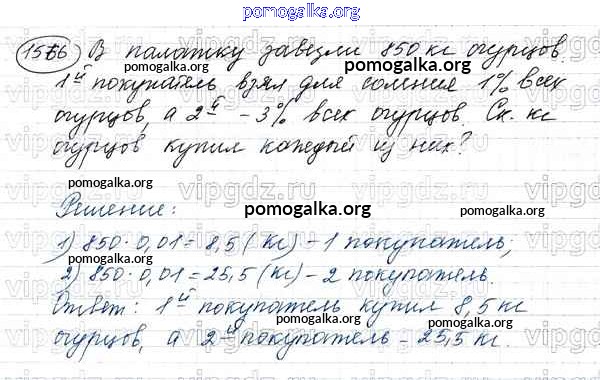 pomogalka.org
1566 В палатку завезли 850 кг огурцов.
pomogalka.org
1й покупатель взял для соления 1% всех
огурцов, а 2й - 3% всех огурцов. Ск. кг
pomogalka.org
огурцов купил каждый из них?
pomogalka.org
pomogalka.org
vipgdz.ru vipgdz.ru vipgdz.ru
Решение:
pomogalka.org
1) 850 · 0,01 = 8,5 (кг) - 1 покупатель;
2) 850 · 0,01 = 25,5 (кг) - 2 покупатель.
pomogalka.org
pomogalka.org
Ответ: 1й покупатель купил 8,5 кг
pomogalka.org
огурцов, а 2й покупатель - 25,5 кг.
pomogalka.org